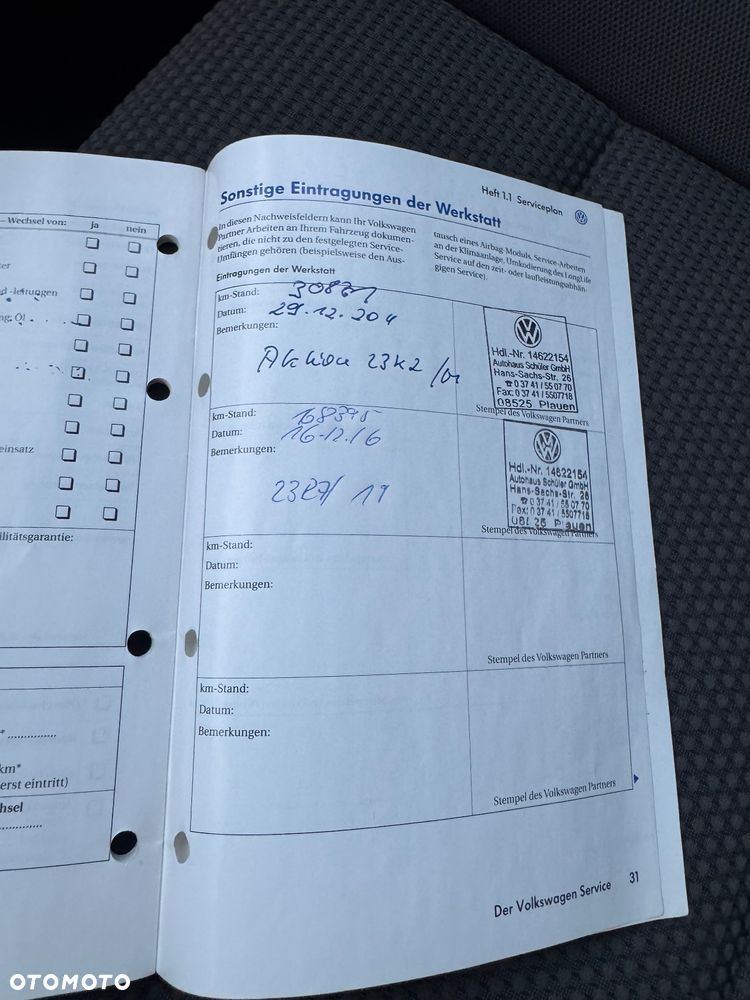 – Wechsel von: ja nein
ter
d -leitungen
ng, Öl
einsatz
ilitätsgarantie:
km*
erst eintritt)
hsel
Heft 1.1 Serviceplan
Sonstige Eintragungen der Werkstatt
In diesen Nachweisfeldern kann Ihr Volkswagen
Partner Arbeiten an Ihrem Fahrzeug dokumen-
tieren, die nicht zu den festgelegten Service-
Umfängen gehören (beispielsweise den Aus-
tausch eines Airbag-Moduls, Service-Arbeiten
an der Klimaanlage, Umkodierung des LongLife
Service auf den zeit- oder laufleistungsabhän-
gigen Service).
Eintragungen der Werkstatt
km-Stand:
Datum: 29.12.204
Bemerkungen:
Aktion 23K2
Hdl.-Nr. 14622154
Autohaus Schüler GmbH
Hans-Sachs-Str. 26
☎ 0 37 41 / 55 07 70
Fax: 0 37 41 / 5507718
08525 Plauen
Stempel des Volkswagen Partners
km-Stand: 168375
Datum: 16.12.16
Bemerkungen:
23R7/ 19
Hdl.-Nr. 14622154
Autohaus Schüler GmbH
Hans-Sachs-Str. 26
☎ 0 37 41 / 55 07 70
Fax: 0 37 41 / 5507718
08525 Plauen
Stempel des Volkswagen Partners
km-Stand:
Datum:
Bemerkungen:
Stempel des Volkswagen Partners
km-Stand:
Datum:
Bemerkungen:
Stempel des Volkswagen Partners
Der Volkswagen Service 31
OTOMOTO